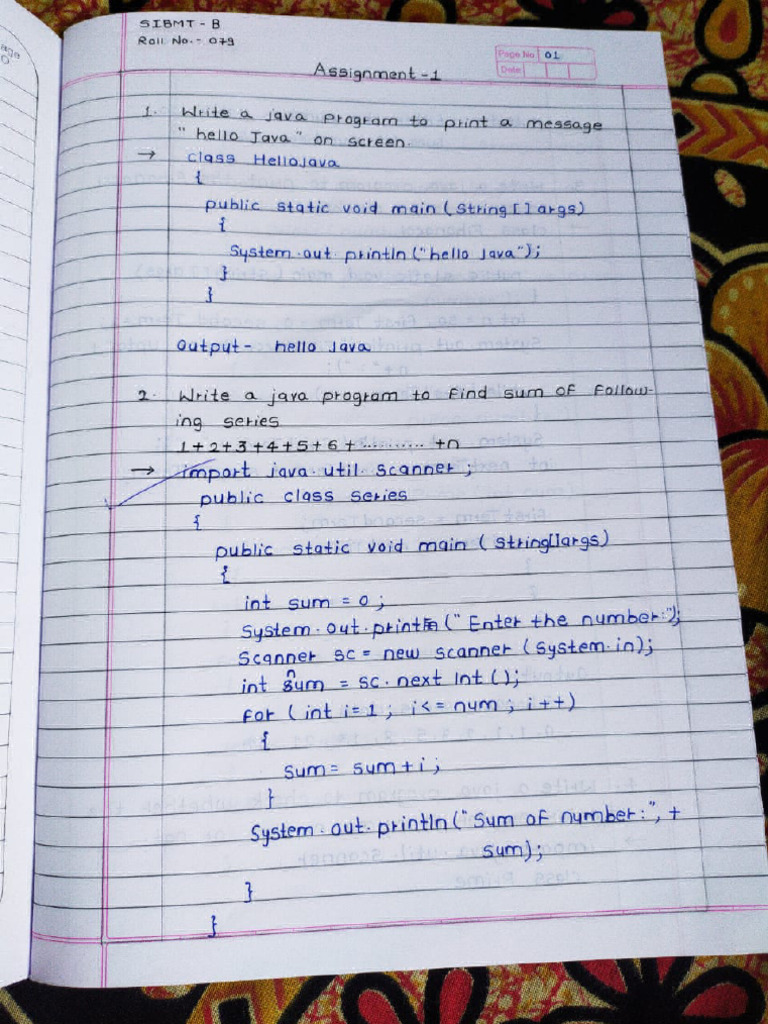 SIBMT - B
Roll No. - 079
Page No 01
Date
Assignment - 1
1. Write a java program to print a message
" hello Java" on screen.
→ class HelloJava
{
public static void main (String [] args)
{
System.out.println ("hello Java");
}
}
Output - hello Java
2. Write a java program to find sum of follow-
ing series
1+2+3+4+5+6+ ............ +n
→ import java.util.scanner ;
public class series
{
public static void main ( string[]args)
{
int sum = 0 ;
System.out.print ("Enter the number:");
Scanner sc = new scanner (system.in);
int num = sc.next Int ();
for ( int i=1 ; i<= num ; i++)
{
sum = sum+i ;
}
System.out.println ("Sum of number:", +
sum);
}
}